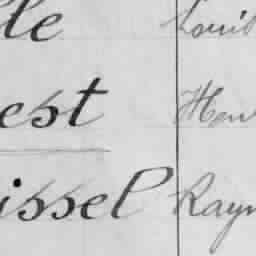 lle Louis
est Hen
issel Rayn